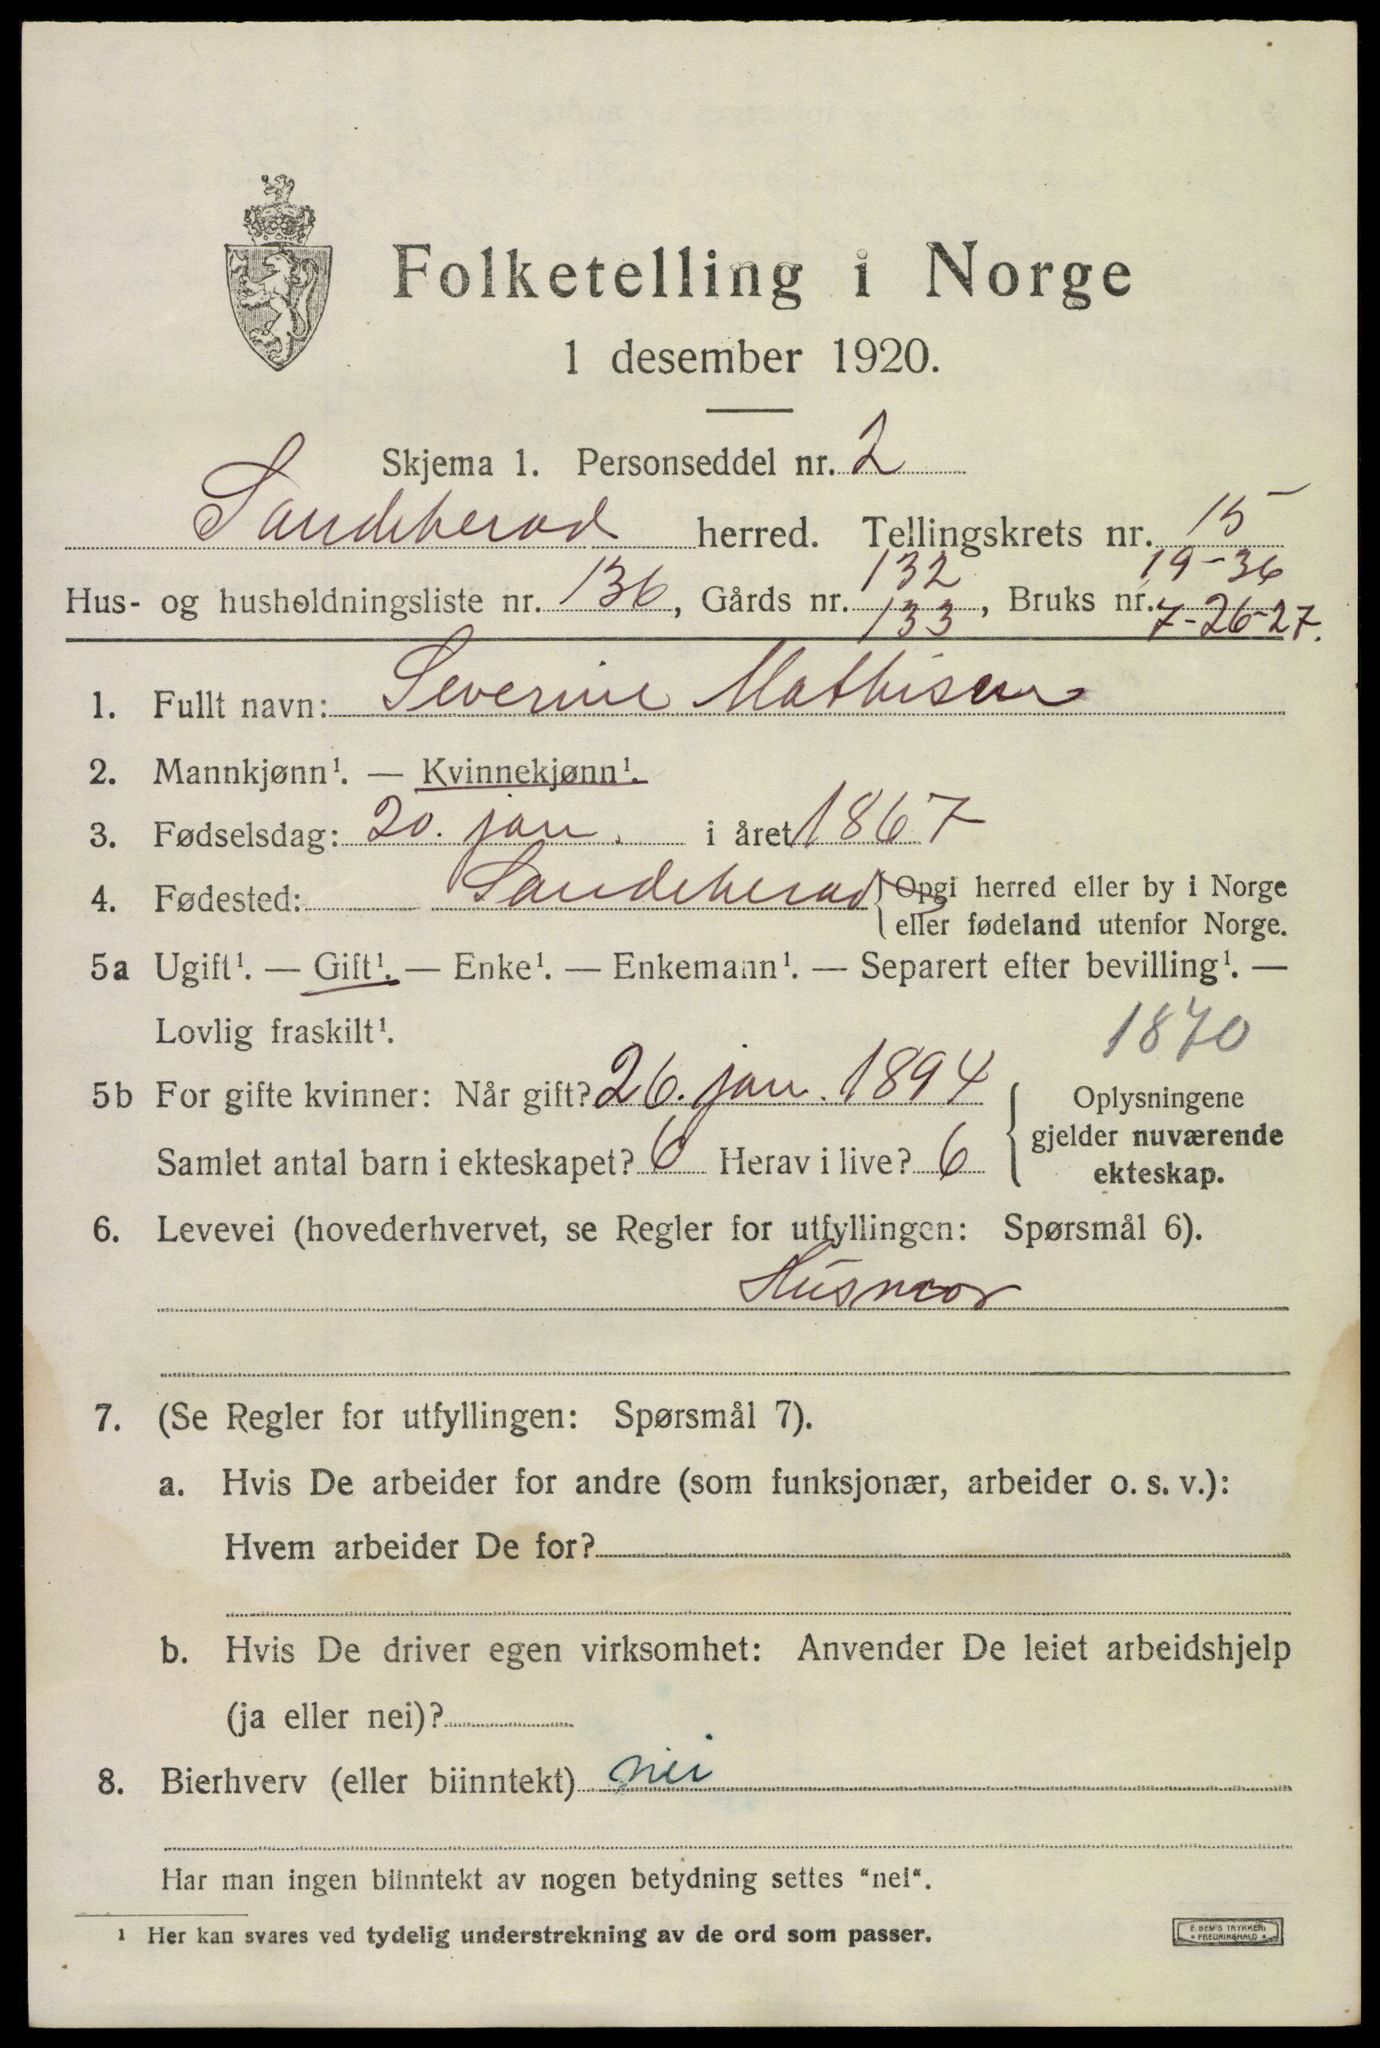 Folketelling i Norge
1 desember 1920.
Skjema 1. Personseddel nr. 2
Sandeherad herred. Tellingskrets nr. 15
Hus- og husholdningsliste nr. 136, Gårds nr. 132 133, Bruks nr. 19-36 7-26-27.
1. Fullt navn: Severine Mathisen
2. Mannkjønn¹. — Kvinnekjønn¹.
3. Fødselsdag: 20. jan. i året 1867
4. Fødested: Sandeherad {Opgi herred eller by i Norge
eller fødeland utenfor Norge.
5a Ugift¹. — Gift¹. — Enke¹. — Enkemann¹. — Separert efter bevilling¹. —
Lovlig fraskilt¹.
1870
5b For gifte kvinner: Når gift? 26. jan. 1894
Samlet antal barn i ekteskapet? 6 Herav i live? 6
{Oplysningene
gjelder nuværende
ekteskap.
6. Levevei (hovederhvervet, se Regler for utfyllingen: Spørsmål 6).
Husmor
7. (Se Regler for utfyllingen: Spørsmål 7).
a. Hvis De arbeider for andre (som funksjonær, arbeider o. s. v.):
Hvem arbeider De for?
b. Hvis De driver egen virksomhet: Anvender De leiet arbeidshjelp
(ja eller nei)?
8. Bierhverv (eller biinntekt) nei
Har man ingen biinntekt av nogen betydning settes "nei".
¹ Her kan svares ved tydelig understrekning av de ord som passer.
E. SEM'S TRYKKERI
FREDRIKSHALD